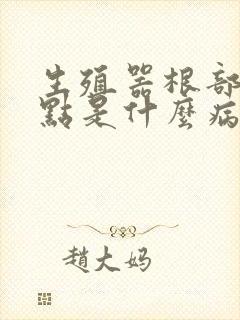 生殖器根部
點是什麼病
趙大妈